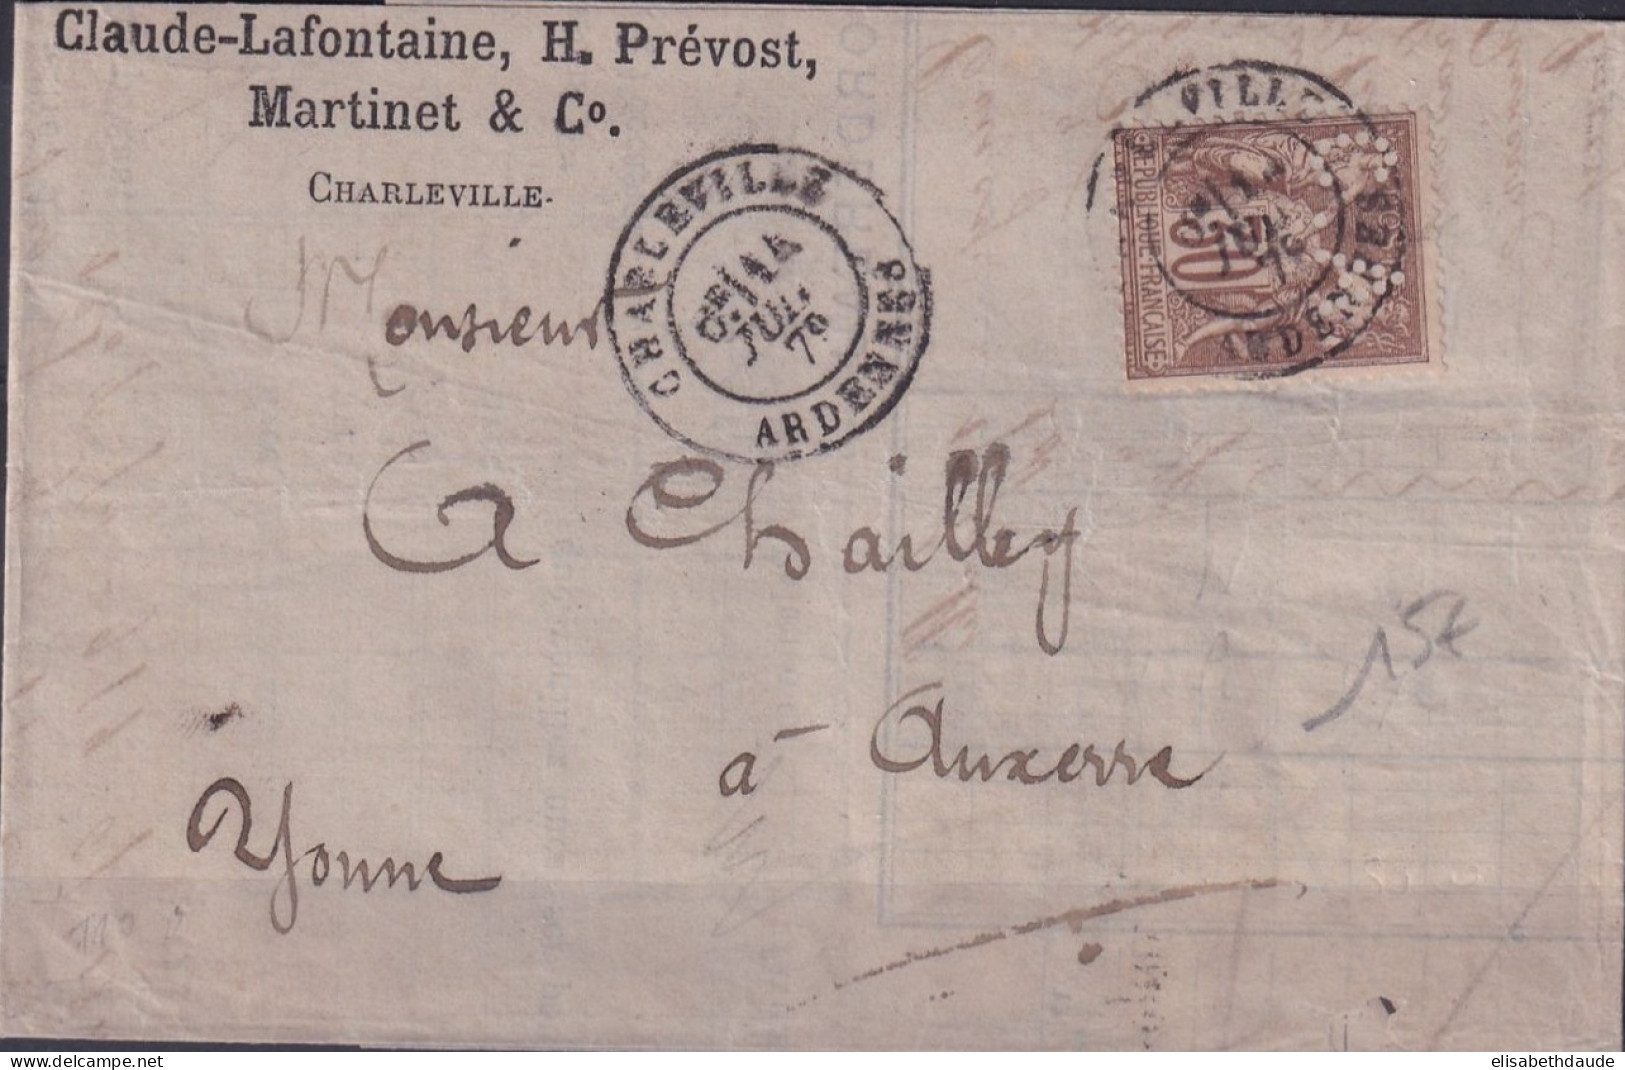 Claude-Lafontaine, H. Prévost,
Martinet & Co.
CHARLEVILLE.
Monsieur
CHARLEVILLE
14
JUIL.
78
ARDENNES
VILLE
REPUBLIQUE FRANÇAISE
30
ARDENNES
A Chailley
à Auxerre
Yonne
15€
elisabethdaude